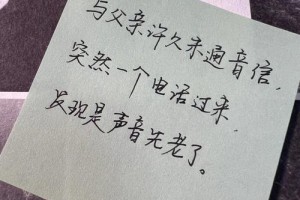 与父亲许久未通音信，
突然一个电话过来，
发现是声音先老了。